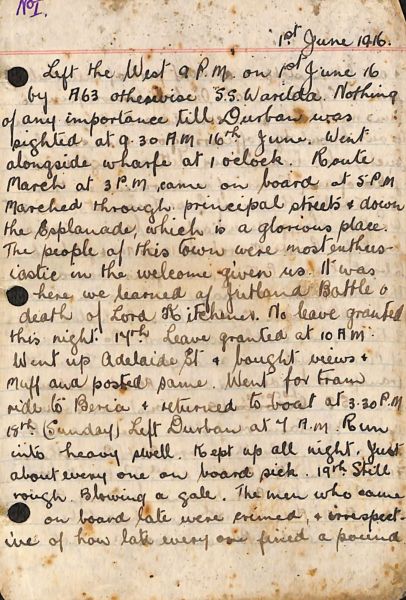 No I.
1st June 1916.
Left the West 9 P.M. on 1st June 16
by A63 otherwise S.S. Warilda. Nothing
of any importance till Durban was
sighted at 9.30 AM. 16th June. Went
alongside wharfe at 1 oclock. Route
March at 3 P.M. came on board at 5 P.M
Marched through principal streets & down
the Esplanade, which is a glorious place.
The people of this town were most enthus-
iastic in the welcome given us. It was
here we learned of Jutland Battle &
death of Lord Kitchener. No leave granted
this night. 17th Leave granted at 10 AM.
Went up Adelaide St & bought views &
Muff and posted same. Went for tram
ride to Beria & returned to boat at 3.30 P.M
18th (Sunday) Left Durban at 7 A.M. Run
into heavy swell. Kept up all night. Just
about every one on board sick. 19th Still
rough. Blowing a gale. The men who came
on board late were crimed, & irrespect-
ive of how late every one fined a pound